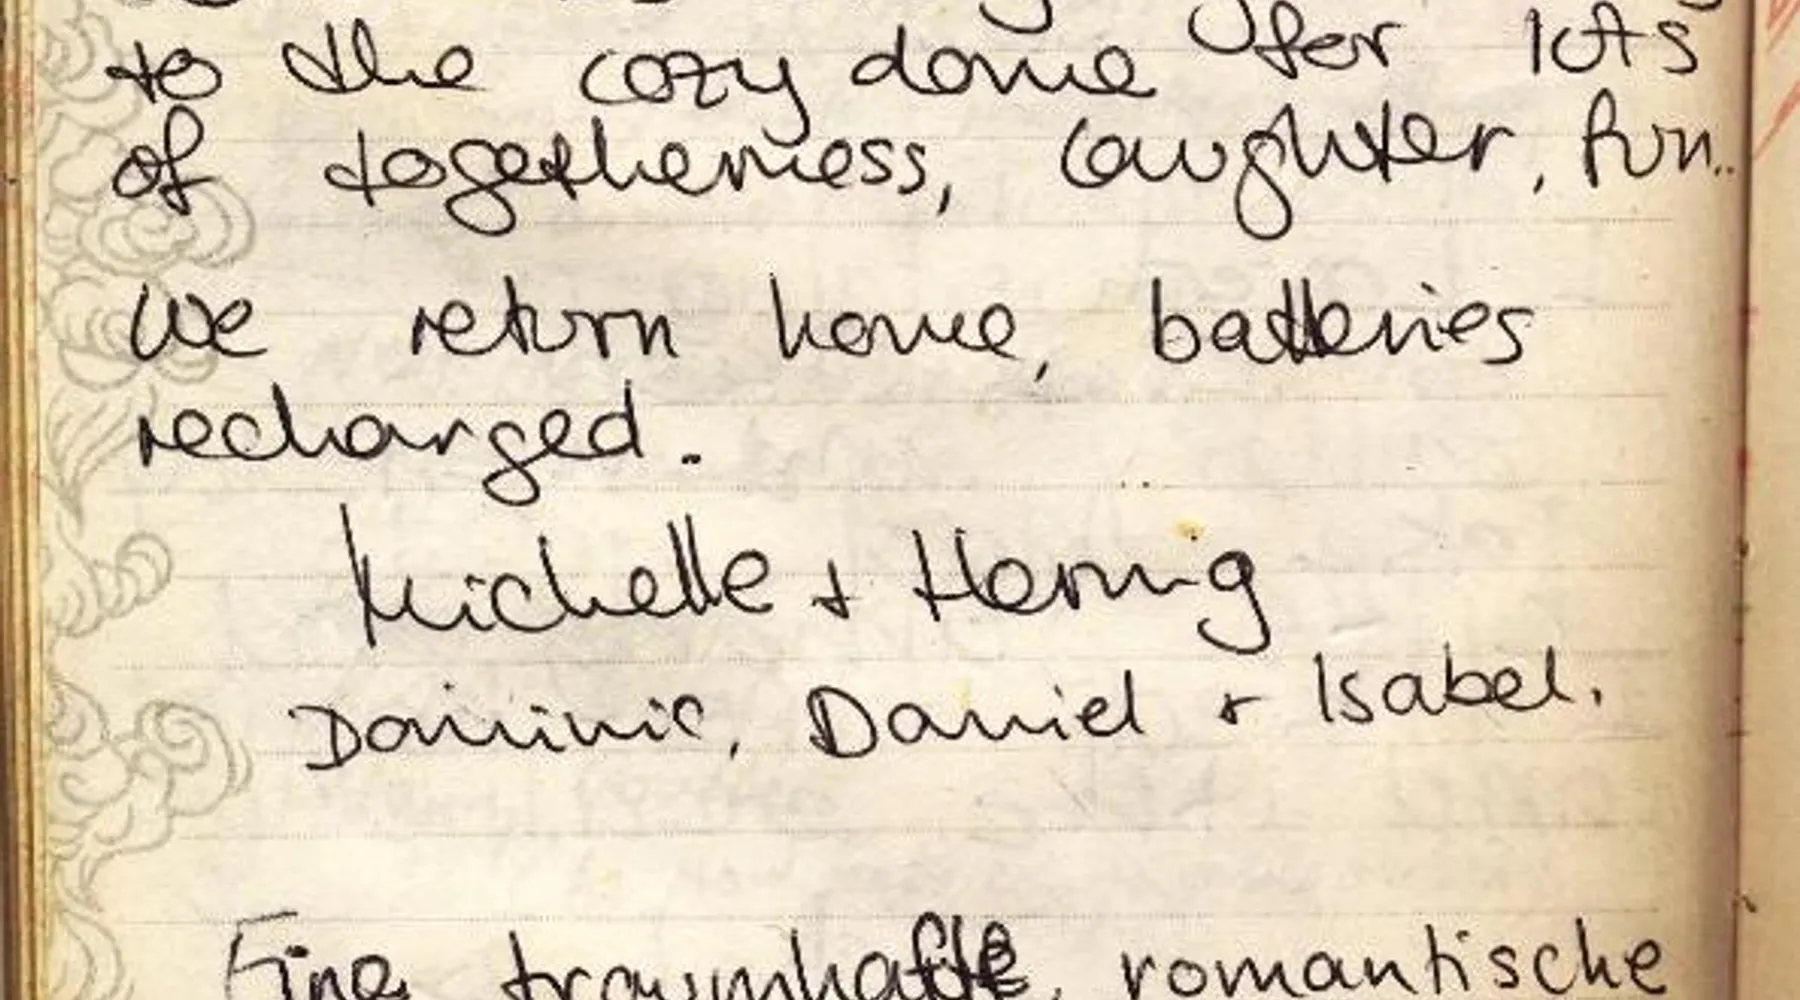 to the cozy dome for lots
of togetherness, laughter, fun..
We return home, batteries
recharged.
Michelle + Hennig
Dominic, Daniel + Isabel.
Eine traumhafte, romantische